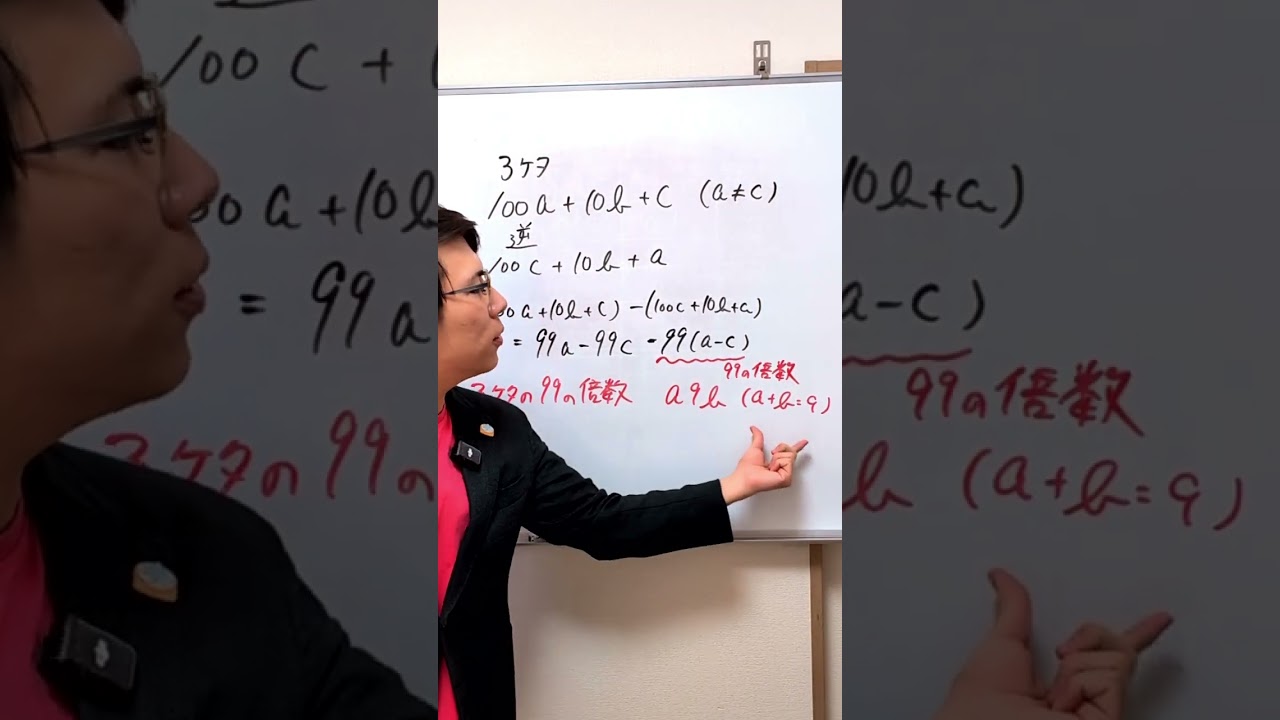 3ケタ
100a+10b+c (a≠c)
逆
100c+10b+a
00a+10b+c)-(100c+10b+a)
=99a-99c=99(a-c)
99の倍数
3ケタの99の倍数 a9b (a+b=9)